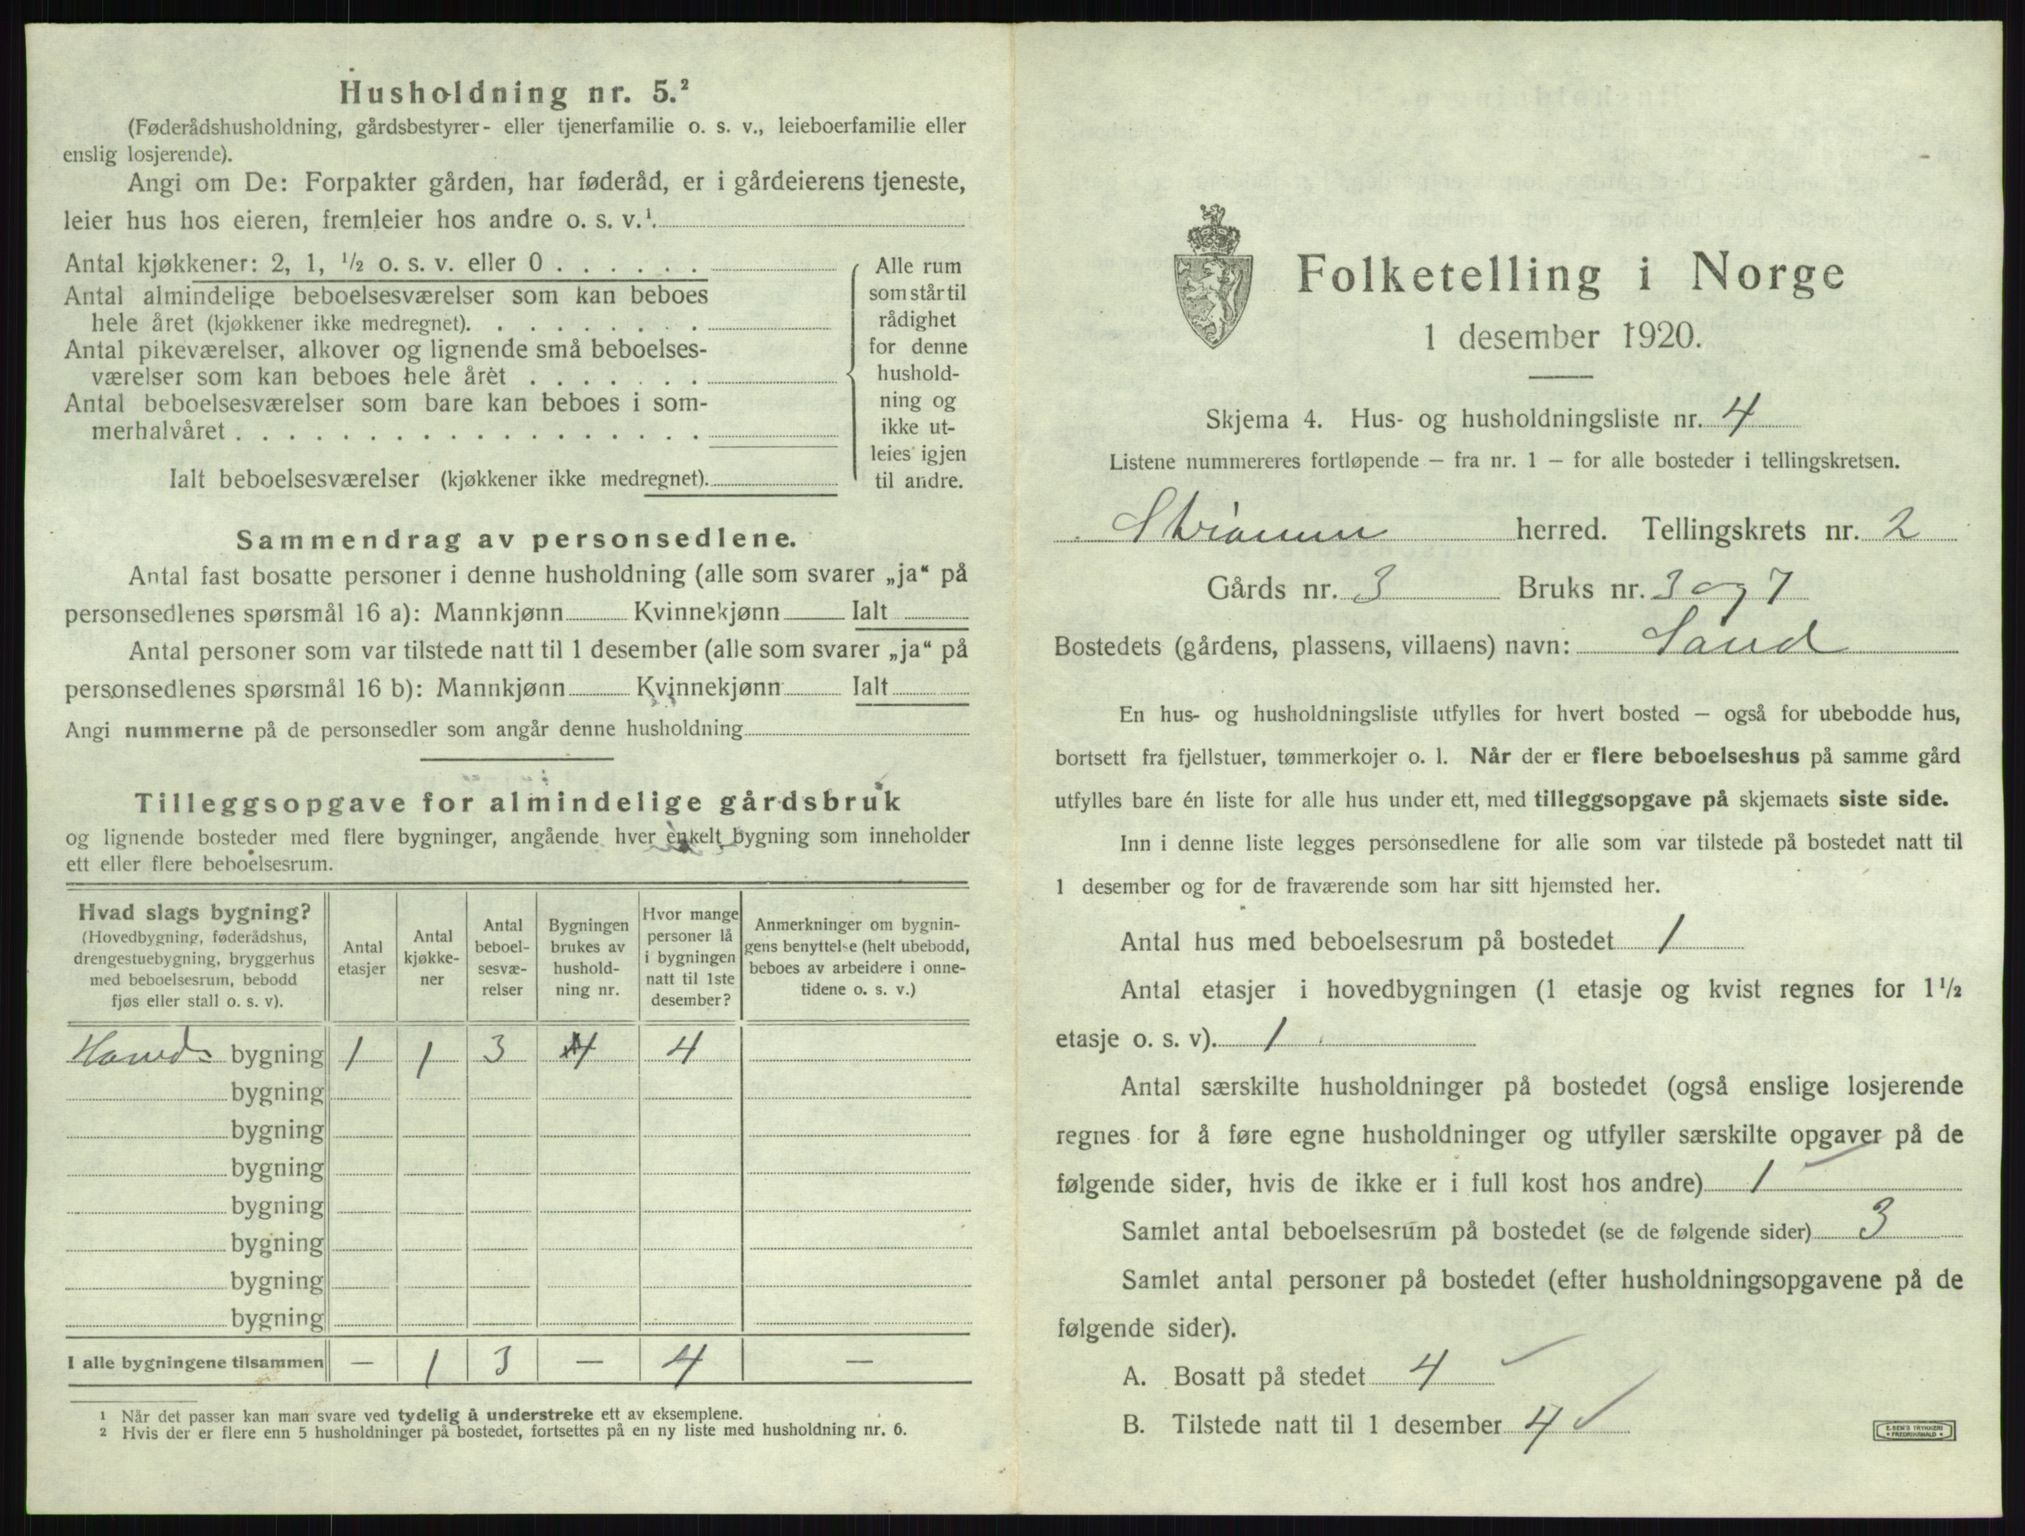 Husholdning nr. 5.²
(Føderådshusholdning, gårdsbestyrer- eller tjenerfamilie o. s. v., leieboerfamilie eller
enslig losjerende).
Angi om De: Forpakter gården, har føderåd, er i gårdeierens tjeneste,
leier hus hos eieren, fremleier hos andre o. s. v.¹.
Antal kjøkkener: 2, 1, ½ o. s. v. eller 0 . . . . . .
Antal almindelige beboelsesværelser som kan beboes
hele året (kjøkkener ikke medregnet). . . . . . . . .
Antal pikeværelser, alkover og lignende små beboelses-
værelser som kan beboes hele året . . . . . . .
Antal beboelsesværelser som bare kan beboes i som-
merhalvåret . . . . . . . . . . . . . . . . . .
Ialt beboelsesværelser (kjøkkener ikke medregnet).
Alle rum
som står til
rådighet
for denne
hushold-
ning og
ikke ut-
leies igjen
til andre.
Sammendrag av personsedlene.
Antal fast bosatte personer i denne husholdning (alle som svarer „ja“ på
personsedlenes spørsmål 16 a): Mannkjønn Kvinnekjønn Ialt
Antal personer som var tilstede natt til 1 desember (alle som svarer „ja“ på
personsedlenes spørsmål 16 b): Mannkjønn Kvinnekjønn Ialt
Angi nummerne på de personsedler som angår denne husholdning
Tilleggsopgave for almindelige gårdsbruk
og lignende bosteder med flere bygninger, angående hver enkelt bygning som inneholder
ett eller flere beboelsesrum.
Hvad slags bygning?
(Hovedbygning, føderådshus,
drengestuebygning, bryggerhus
med beboelsesrum, bebodd
fjøs eller stall o. s. v).
Antal
etasjer
Antal
kjøkke-
ner
Antal
beboel-
sesvæ-
relser
Bygningen
brukes av
hushold-
ning nr.
Hvor mange
personer lå
i bygningen
natt til 1ste
desember?
Anmerkninger om bygnin-
gens benyttelse (helt ubebodd,
beboes av arbeidere i onne-
tidene o. s. v.)
Hoveds bygning 1 1 3 4 4
bygning
bygning
bygning
bygning
bygning
bygning
bygning
I alle bygningene tilsammen — 1 3 — 4 —
¹ Når det passer kan man svare ved tydelig å understreke ett av eksemplene.
² Hvis der er flere enn 5 husholdninger på bostedet, fortsettes på en ny liste med husholdning nr. 6.
Folketelling i Norge
1 desember 1920.
Skjema 4. Hus- og husholdningsliste nr. 4
Listene nummereres fortløpende – fra nr. 1 – for alle bosteder i tellingskretsen.
Strømm herred. Tellingskrets nr. 2
Gårds nr. 3 Bruks nr. 3 og 7
Bostedets (gårdens, plassens, villaens) navn: Sand
En hus- og husholdningsliste utfylles for hvert bosted – også for ubebodde hus,
bortsett fra fjellstuer, tømmerkojer o. l. Når der er flere beboelseshus på samme gård
utfylles bare én liste for alle hus under ett, med tilleggsopgave på skjemaets siste side.
Inn i denne liste legges personsedlene for alle som var tilstede på bostedet natt til
1 desember og for de fraværende som har sitt hjemsted her.
Antal hus med beboelsesrum på bostedet 1
Antal etasjer i hovedbygningen (1 etasje og kvist regnes for 1½
etasje o. s. v). 1
Antal særskilte husholdninger på bostedet (også enslige losjerende
regnes for å føre egne husholdninger og utfyller særskilte opgaver på de
følgende sider, hvis de ikke er i full kost hos andre) 1
Samlet antal beboelsesrum på bostedet (se de følgende sider) 3
Samlet antal personer på bostedet (efter husholdningsopgavene på de
følgende sider).
A. Bosatt på stedet 4
B. Tilstede natt til 1 desember 4
TRYKKERI
FREDRIKSHALD